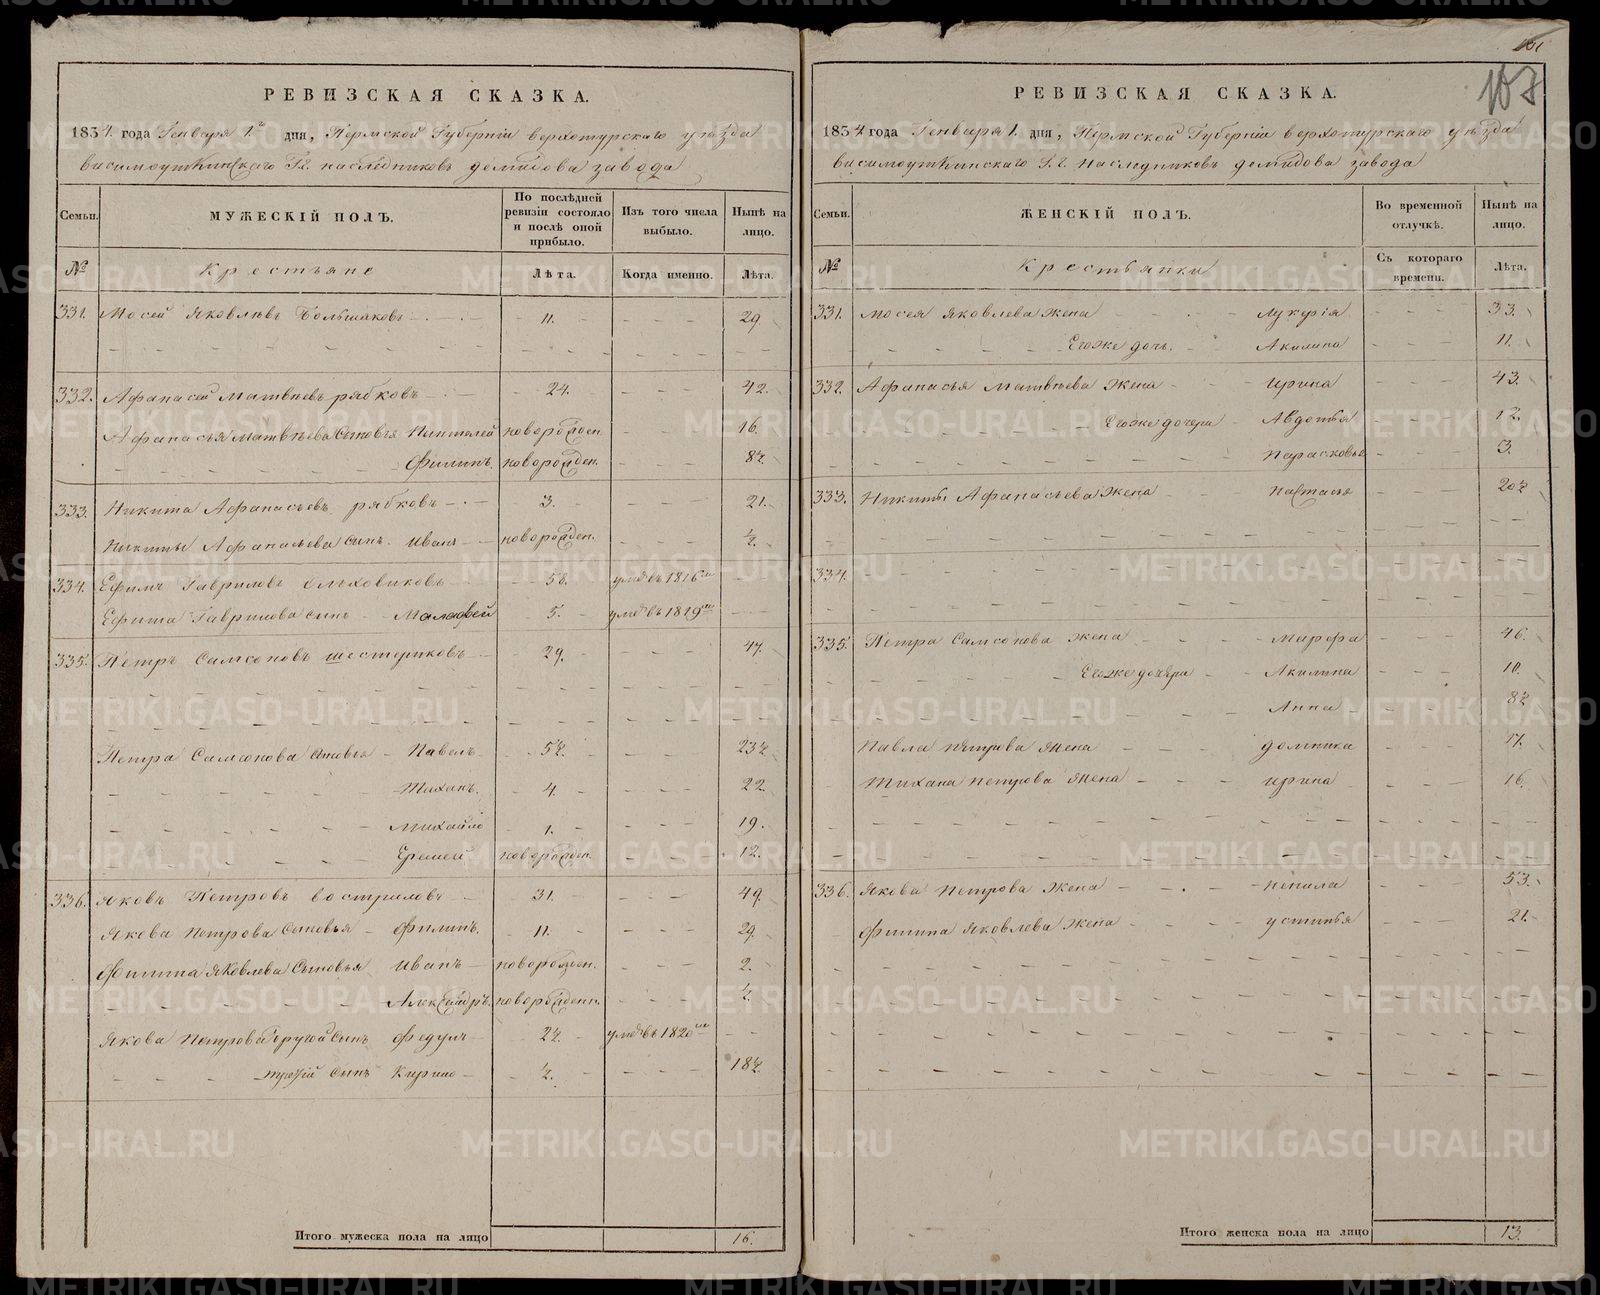 101
107
РЕВИЗСКАЯ СКАЗКА.
1834. года Генваря 1го дня, Пермской Губерніи верхотурскаго уѣзда
висимоуткинскаго Гг. наслѣдниковъ демидова завода
Семьи. МУЖЕСКІЙ ПОЛЪ. По послѣдней ревизіи состояло и послѣ оной прибыло. Изъ того числа выбыло. Нынѣ на лицо.
№ Крестьяне Лѣта. Когда именно. Лѣта.
331. Мосей Яковлевъ Большаковъ 11. 29.
332. Афанасей Матвѣевъ рябковъ 24. 42.
Афанасья Матвѣева Сыновья Пантелей новорожден. 16.
Филипъ. новорожден. 8½
333. Никита Афанасьевъ рябковъ 3. 21.
Никиты Афанасьева сынъ. Иванъ новорожден. ½.
334. Ефимъ Гавриловъ 58. умѣ въ 1816мъ
Ефима Гаврилова сынъ 5. умѣ въ 1819мъ
335. Петръ Самсоновъ шестериковъ 29. 47.
Петра Самсонова Сыновья Павелъ 5½. 23½
Тиханъ. 4. 22.
Михайло 1. 19.
Еремей новорожден. 12.
336. Яковъ Петровъ востриловъ 31. 49.
Якова Петрова Сыновья Филипъ. 11. 29.
Филипа Яковлева Сыновья Иванъ новорожден. 2.
Александръ. новорожденн. ½.
Якова Петрова другой Сынъ Федулъ 2½. умѣ въ 1820мъ
третій Сынъ Кирило ½. 18½.
Итого мужеска пола на лицо 16.
РЕВИЗСКАЯ СКАЗКА.
1834 года Генваря 1. дня, Пермской Губерніи верхотурскаго уѣзда
висимоуткинскаго Гг. Наслѣдниковъ демидова завода
Семьи. ЖЕНСКІЙ ПОЛЪ. Во временной отлучкѣ. Нынѣ на лицо.
№ Крестьянки Съ котораго времени. Лѣта.
331. Мосея Яковлева жена Лукурія 33.
Егоже дочь. Акилина 11.
332. Афанасья Матвѣева жена ирина 43.
Егоже дочери Авдотья 12.
Парасковья 3.
333. Никиты Афанасьева жена настасья 20½
334.
335. Петра Самсонова жена Марфа 46.
Егоже дочери Акилина 10.
Анна 8½
Павла петрова жена домника 17.
Тихана петрова жена ирина 16.
336. Якова Петрова жена ненила 53.
Филипа Яковлева жена устинья 21.
Итого женска пола на лицо 13.
METRIKI.GASO-URAL.RU